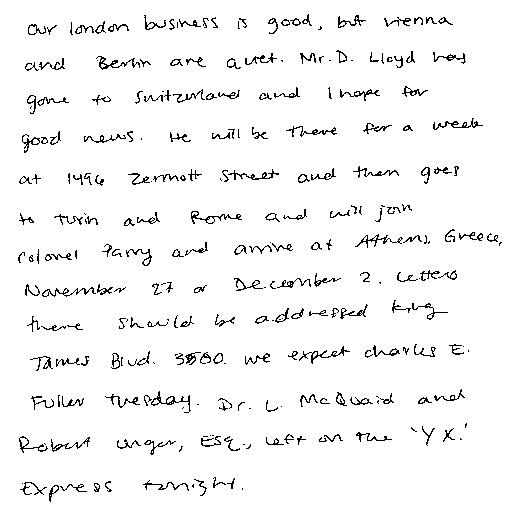 Our london business is good, but vienna
and Berlin are quiet. Mr. D. Lloyd has
gone to Switzerland and I hope for
good news. He will be there for a week
at 1496 Zermott Street and then goes
to Turin and Rome and will join
Colonel Parry and arrive at Athens, Greece,
November 27 or December 2. Letters
there should be addressed King
James Blvd. 3580. We expect Charles E.
Fuller Tuesday. Dr. L. McQuaid and
Robert Unger, Esq., left on the 'Y X.'
Express tonight.